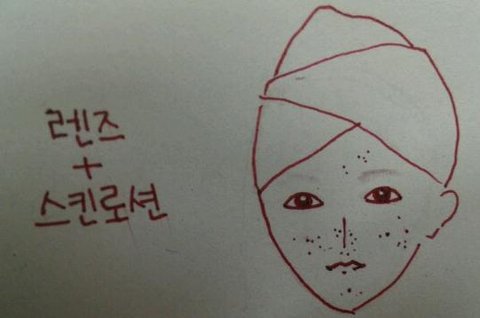 렌즈
+
스킨로션